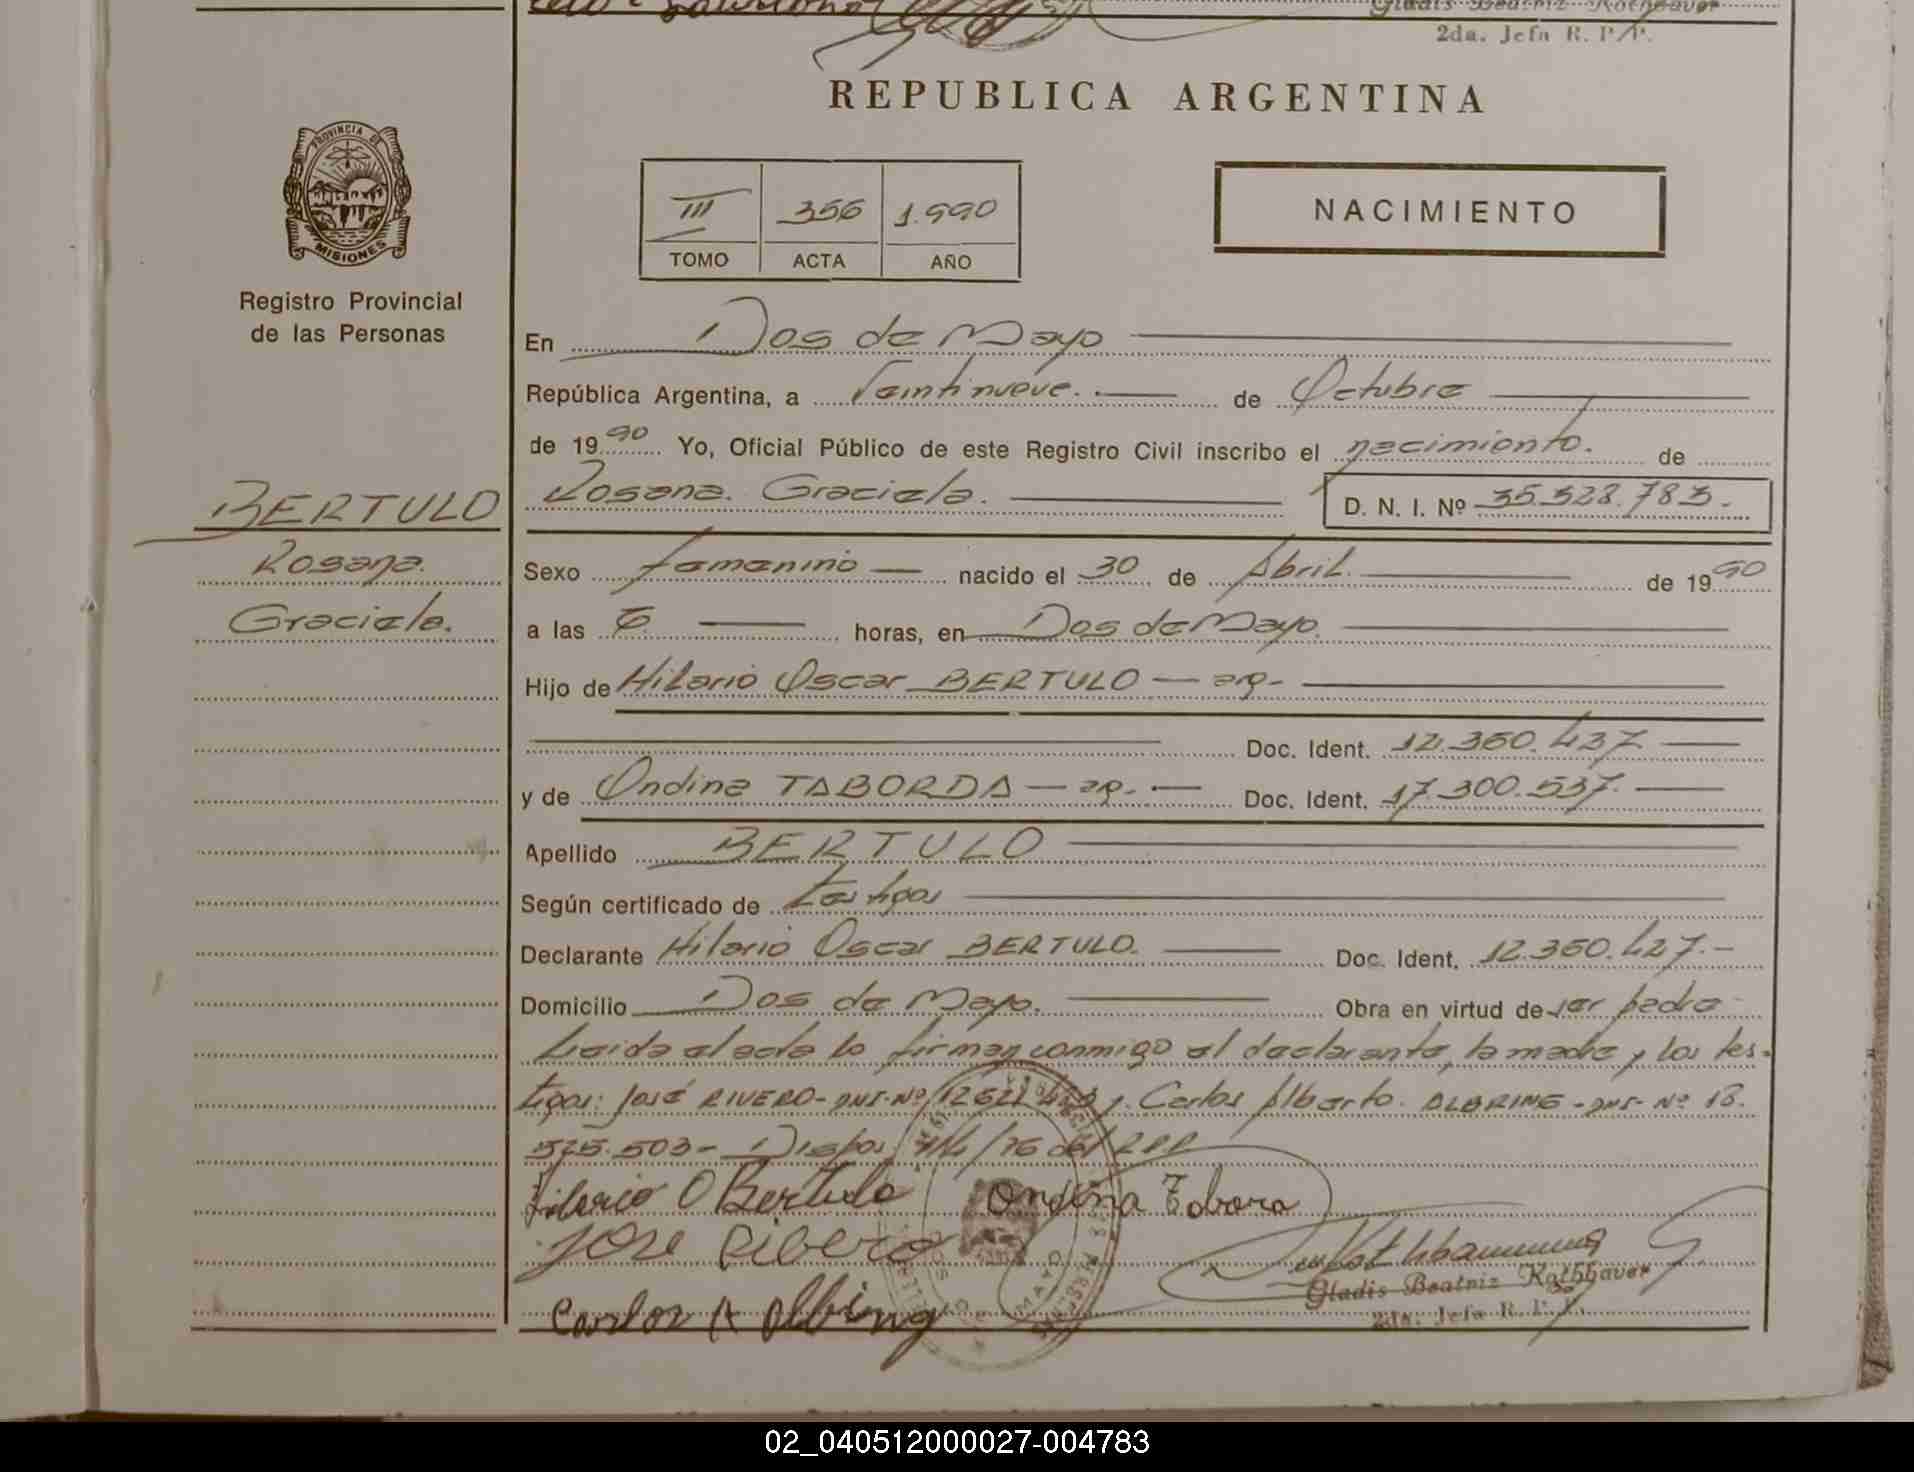 Gladis Beatriz Rothbauer
2da. Jefa R. P. P.
REPUBLICA ARGENTINA
PROVINCIA DE
MISIONES
Registro Provincial
de las Personas
III 356 1.990
TOMO ACTA AÑO
NACIMIENTO
En Dos de Mayo
República Argentina, a Veintinueve. de Octubre
de 1990 Yo, Oficial Público de este Registro Civil inscribo el nacimiento. de
Rosana. Graciela. D. N. I. Nº 35.328.783.
BERTULO
Rosana.
Graciela.
Sexo femenino nacido el 30 de Abril. de 1990
a las 6 horas, en Dos de Mayo.
Hijo de Hilario Oscar BERTULO — arg-
Doc. Ident. 12.360.437
y de Ondina TABORDA — arg. — Doc. Ident. 17.300.537.
Apellido BERTULO
Según certificado de testigos
Declarante Hilario Oscar BERTULO. Doc. Ident. 12.360.427.-
Domicilio Dos de Mayo. Obra en virtud de ser padre
Leida el acta lo firman conmigo el declarante, la madre y los tes-
tigos: José RIVERO- DNI-Nº y. Carlos Alberto. ALBRING - DNI- Nº 18.
525.503- Dispos. /76 del RPP
Hilario O Bertulo Ondina Tabora
Jose Ribero
Carlos A Albring
Gladis Beatriz Rothbauer
2da. Jefa R. P. P.
DOS DE MAYO
02_040512000027-004783